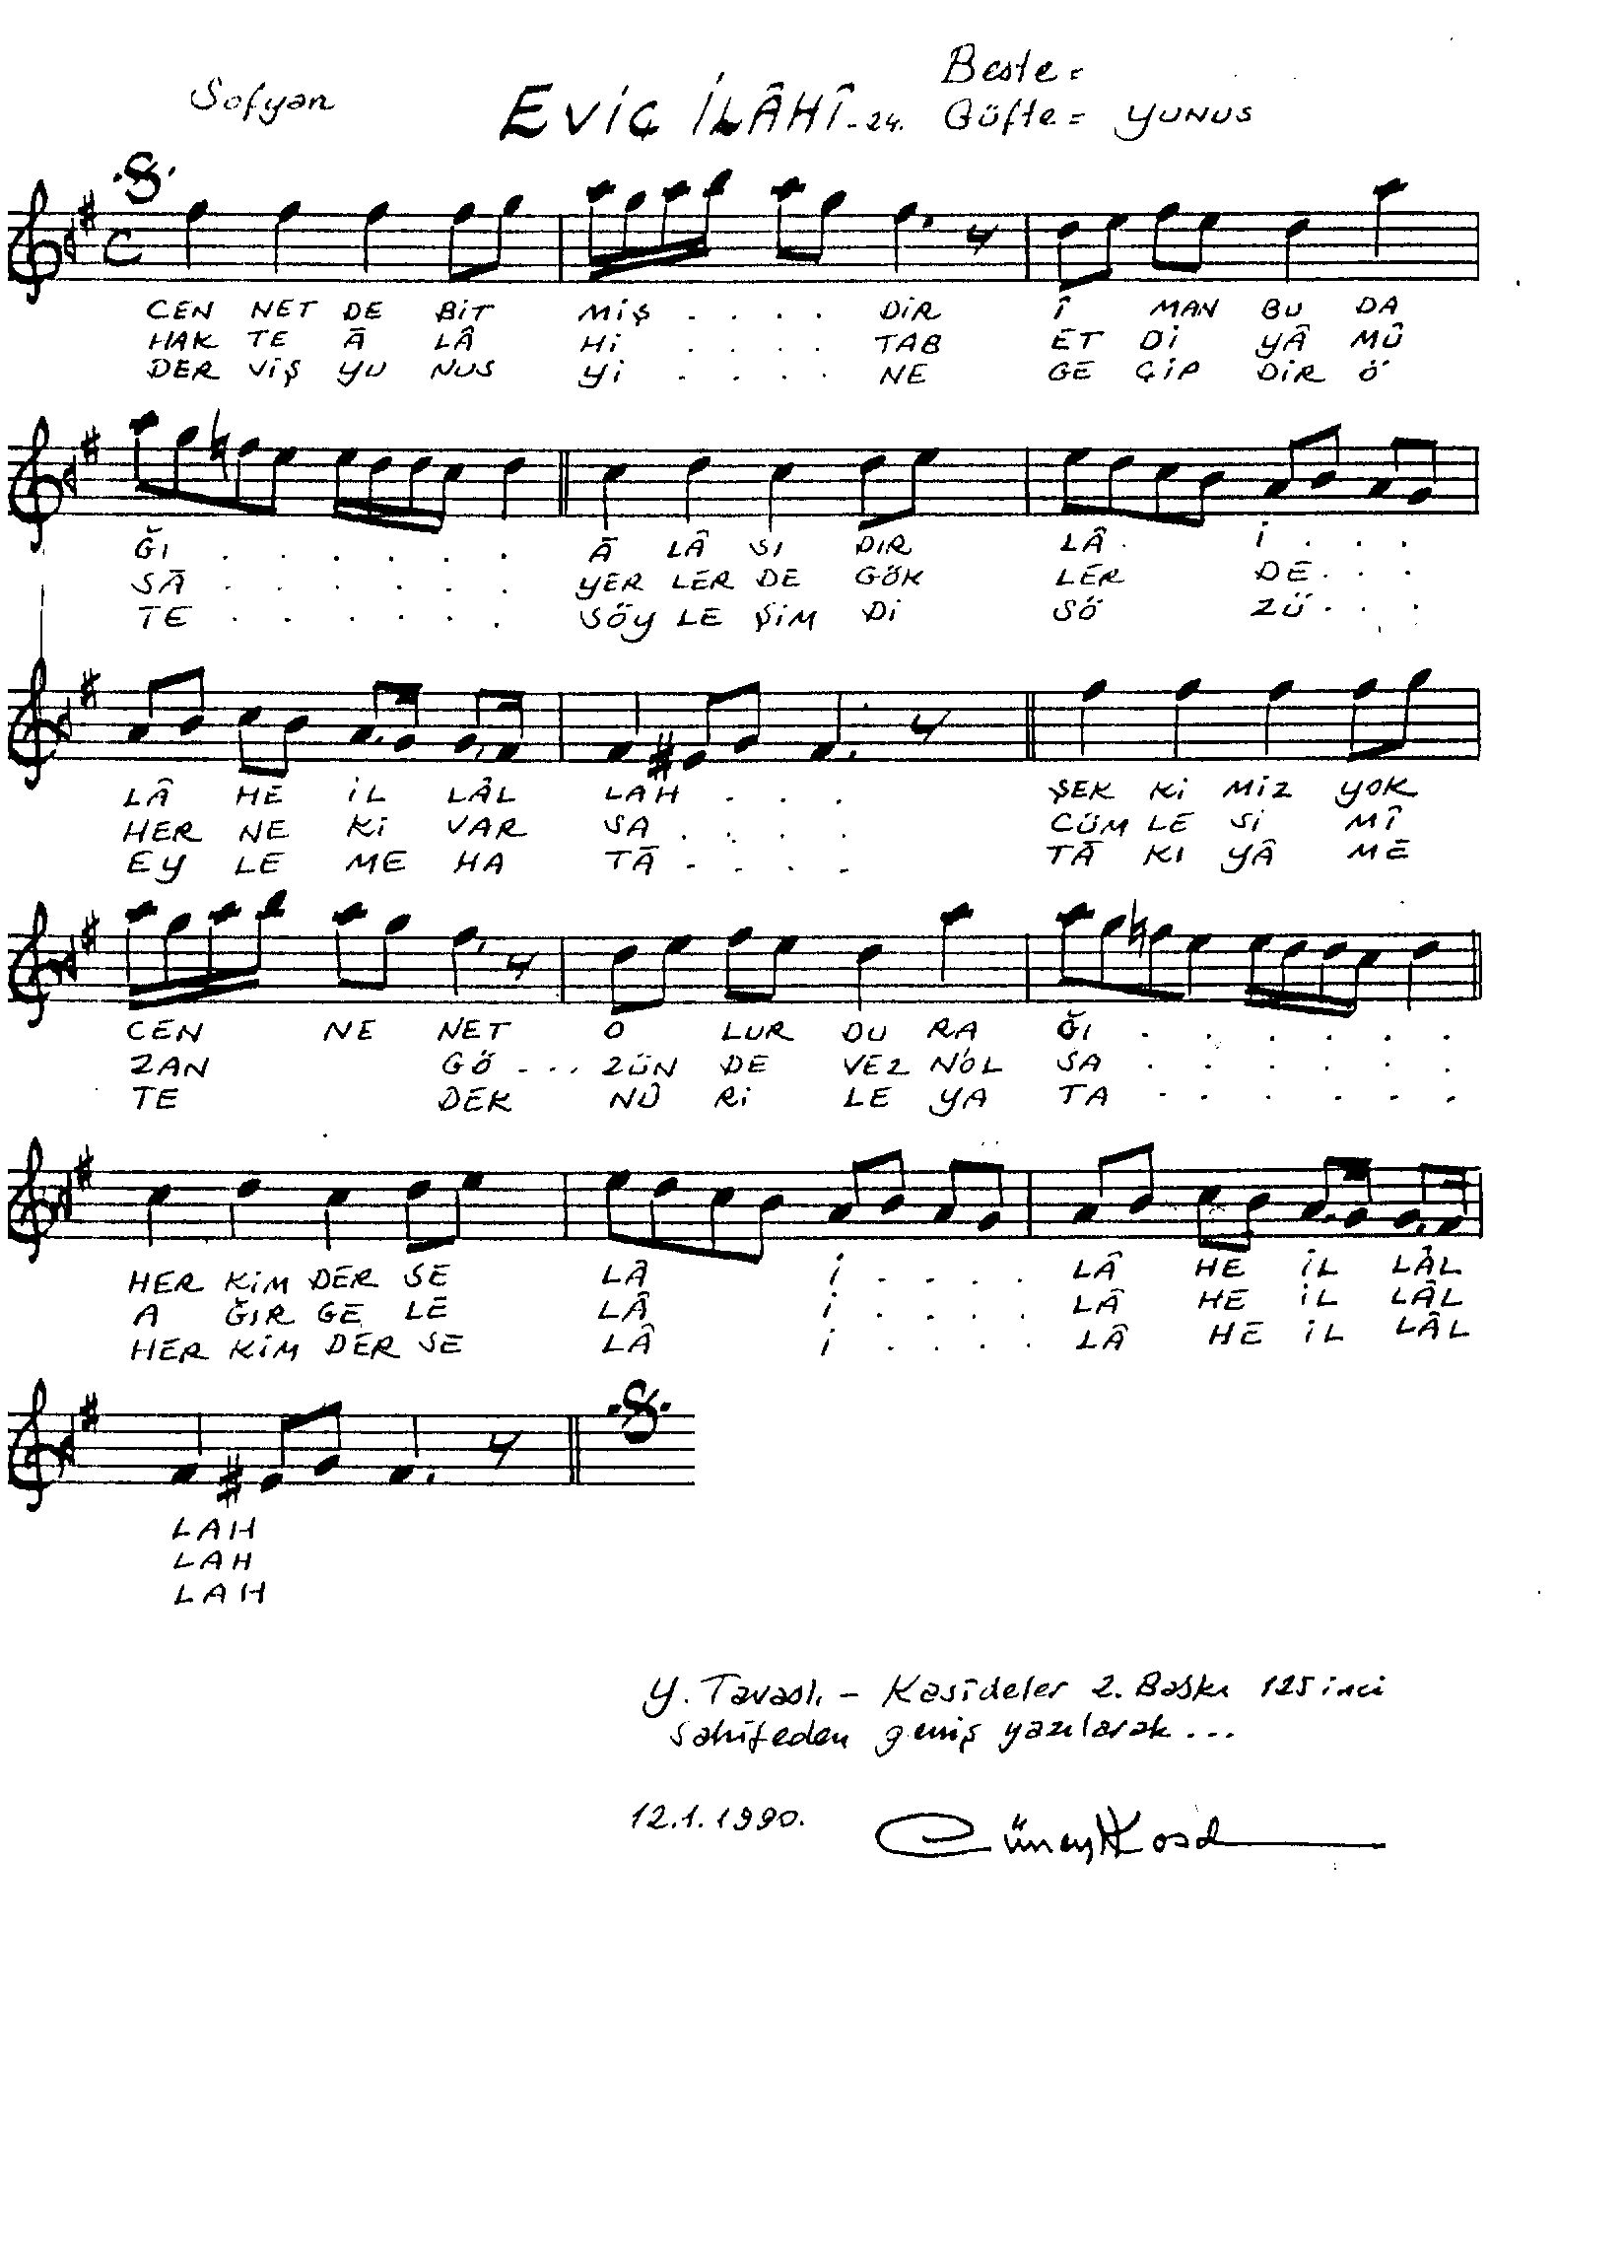 Beste =
Sofyan EVİÇ İLÂHÎ - 24. Güfte = YUNUS
CEN NET DE BİT MİŞ . . . . DİR Î MAN BU DA
HAK TE Ā LÂ Hİ . . . . TAB ET Dİ YÂ MÛ
DER VİŞ YU NUS Yİ . . . . NE GE ÇİP DİR Ö
ĞI . . . . . . Ā LÂ SI DIR LÂ İ . . .
SĀ . . . . . . YER LER DE GÖK LER DE . . .
TE . . . . . . SÖY LE ŞİM Dİ SÖ ZÜ . . .
LÂ HE İL LÂL LAH . . . ŞEK Kİ MİZ YOK
HER NE Kİ VAR SA . . . . CÜM LE Sİ MÎ
EY LE ME HA TĀ . . . . TĀ KI YÂ ME
CEN NE NET O LUR DU RA ĞI . . . . . .
ZAN GÖ . . . ZÜN DE VEZ N'OL SA . . . . . .
TE DEK NÛ Rİ LE YA TA . . . . . .
HER KİM DER SE LÂ İ . . . . LÂ HE İL LÂL
A ĞIR GE LE LÂ İ . . . . LÂ HE İL LÂL
HER KİM DER SE LÂ İ . . . . LÂ HE İL LÂL
LAH
LAH
LAH
Y. Tavaslı - Kasîdeler 2. Baskı 125 inci
sahifeden geniş yazılarak ...
12.1.1990.